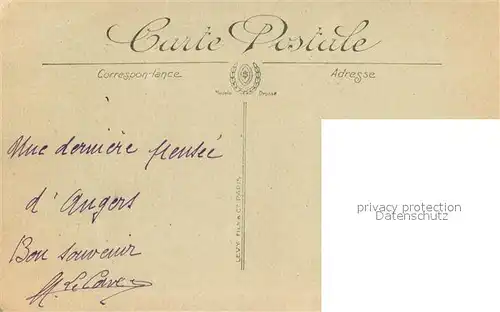 Carte Postale
Correspondance
Adresse
Une dernière pensée
d'Angers
Bon souvenir
LEVY FILS & Cie PARIS
privacy protection
Datenschutz